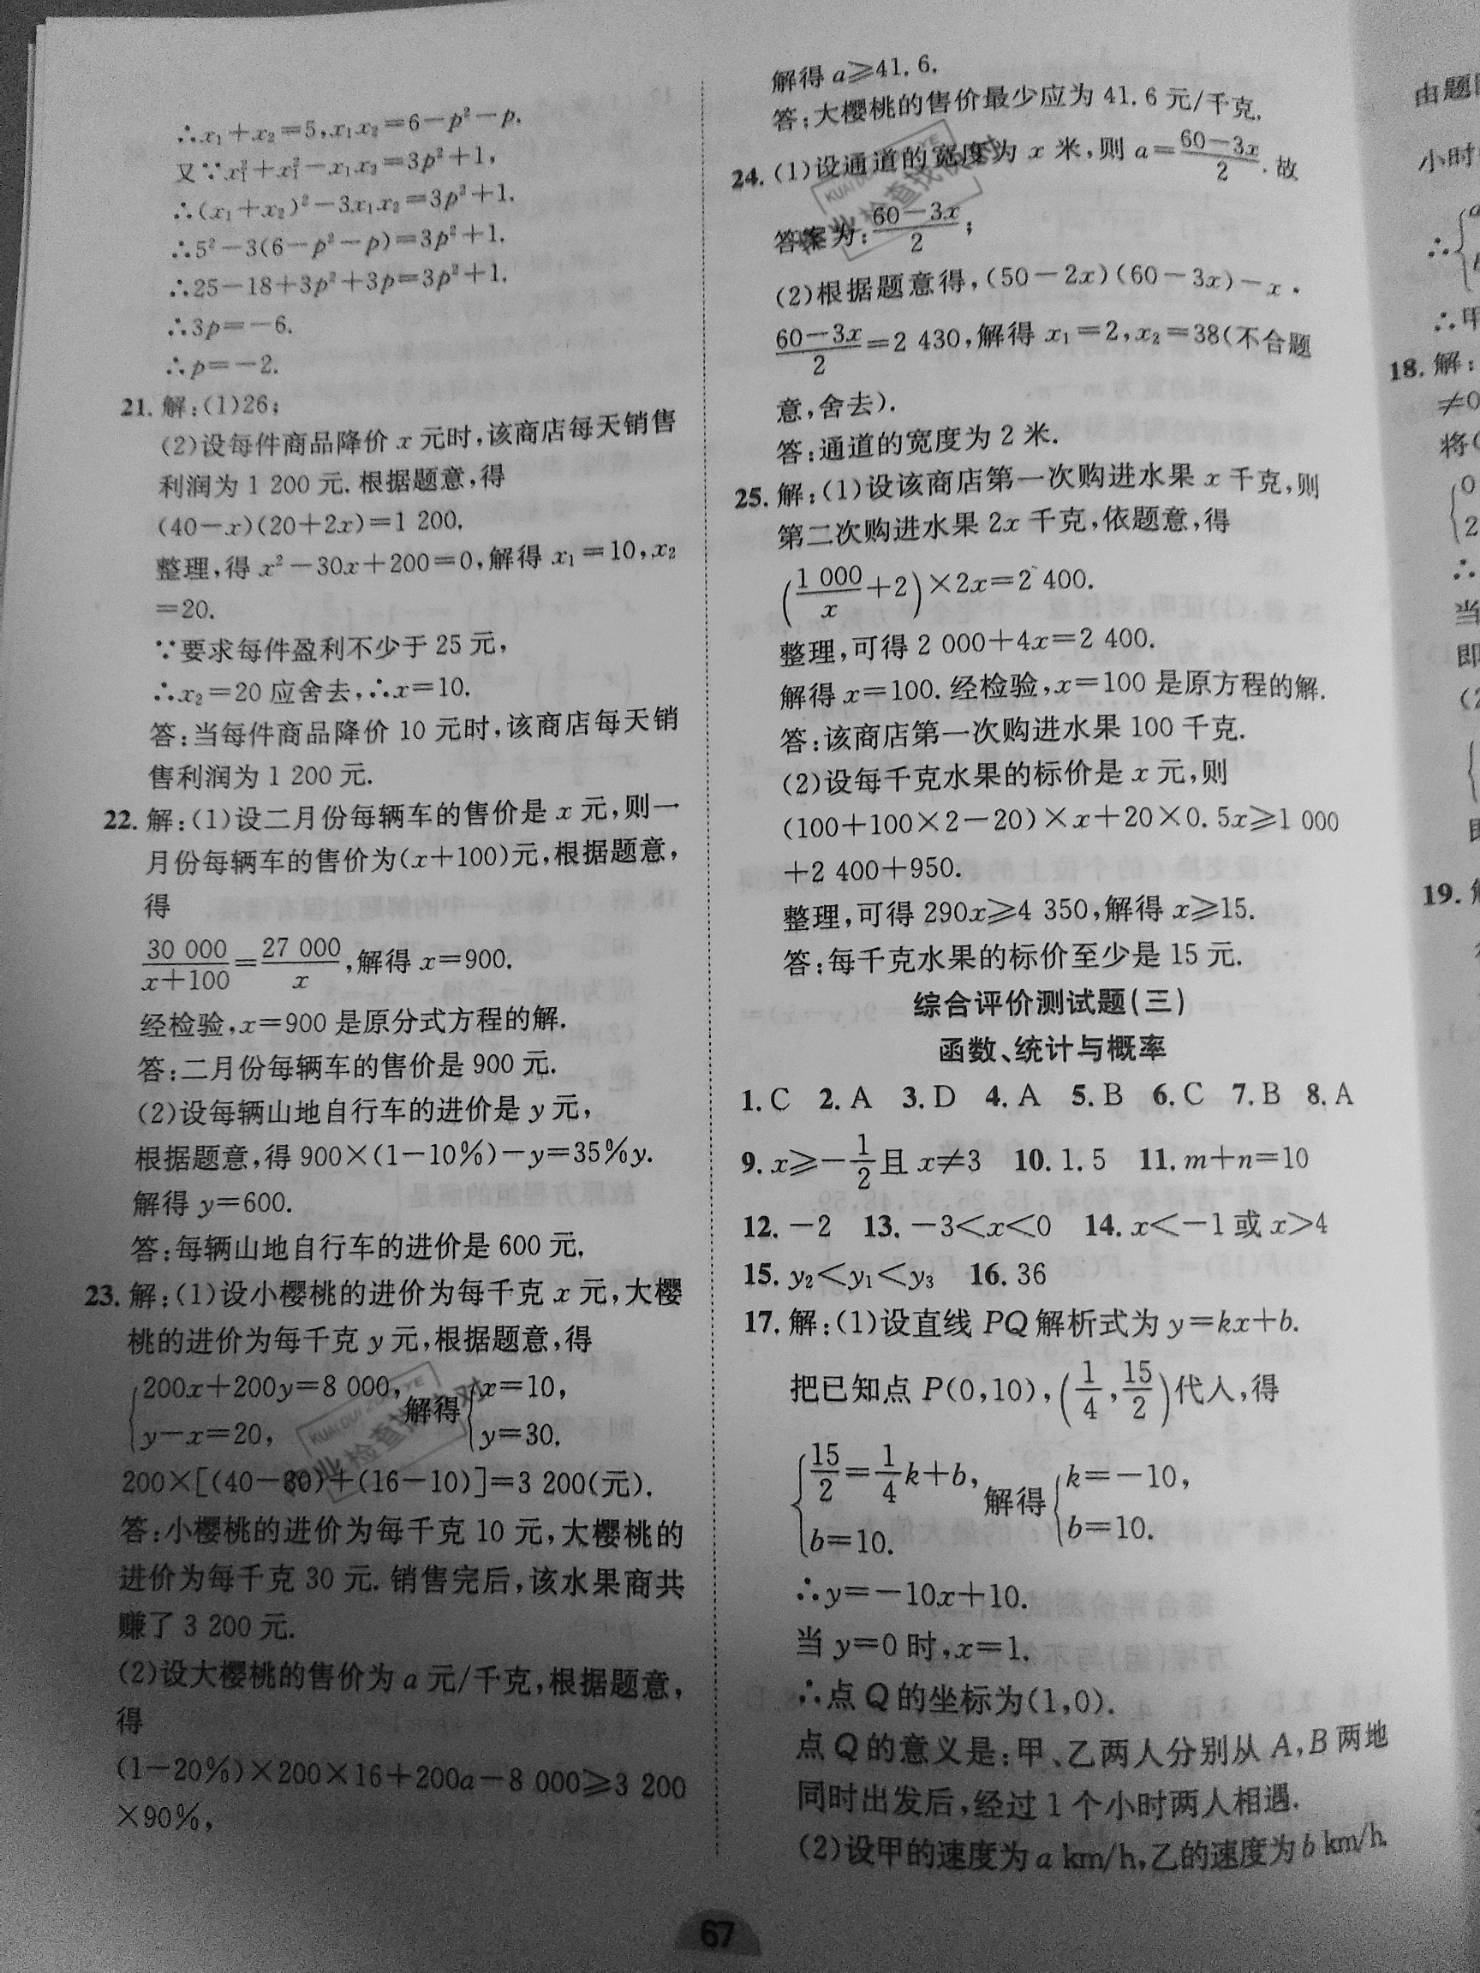 ∴x₁+x₂=5,x₁x₂=6-p²-p.
又∵x₁²+x₂²-x₁x₂=3p²+1,
∴(x₁+x₂)²-3x₁x₂=3p²+1.
∴5²-3(6-p²-p)=3p²+1.
∴25-18+3p²+3p=3p²+1.
∴3p=-6.
∴p=-2.
21. 解:(1)26;
(2)设每件商品降价 x 元时,该商店每天销售
利润为 1 200 元. 根据题意,得
(40-x)(20+2x)=1 200.
整理,得 x²-30x+200=0,解得 x₁=10,x₂
=20.
∵要求每件盈利不少于 25 元,
∴x₂=20 应舍去,∴x=10.
答:当每件商品降价 10 元时,该商店每天销
售利润为 1 200 元.
22. 解:(1)设二月份每辆车的售价是 x 元,则一
月份每辆车的售价为(x+100)元,根据题意,
得
30 000/(x+100)=27 000/x,解得 x=900.
经检验,x=900 是原分式方程的解.
答:二月份每辆车的售价是 900 元.
(2)设每辆山地自行车的进价是 y 元,
根据题意,得 900×(1-10%)-y=35%y.
解得 y=600.
答:每辆山地自行车的进价是 600 元.
23. 解:(1)设小樱桃的进价为每千克 x 元,大樱
桃的进价为每千克 y 元,根据题意,得
{200x+200y=8 000, y-x=20, 解得{x=10, y=30.
200×[(40-30)+(16-10)]=3 200(元).
答:小樱桃的进价为每千克 10 元,大樱桃的
进价为每千克 30 元. 销售完后,该水果商共
赚了 3 200 元.
(2)设大樱桃的售价为 a 元/千克,根据题意,
得
(1-20%)×200×16+200a-8 000≥3 200
×90%,
解得 a≥41.6.
答:大樱桃的售价最少应为 41.6 元/千克.
24. (1)设通道的宽度为 x 米,则 a=(60-3x)/2. 故
答案为:(60-3x)/2;
(2)根据题意得,(50-2x)(60-3x)-x·
(60-3x)/2=2 430,解得 x₁=2,x₂=38(不合题
意,舍去).
答:通道的宽度为 2 米.
25. 解:(1)设该商店第一次购进水果 x 千克,则
第二次购进水果 2x 千克,依题意,得
(1 000/x+2)×2x=2 400.
整理,可得 2 000+4x=2 400.
解得 x=100. 经检验,x=100 是原方程的解.
答:该商店第一次购进水果 100 千克.
(2)设每千克水果的标价是 x 元,则
(100+100×2-20)×x+20×0.5x≥1 000
+2 400+950.
整理,可得 290x≥4 350,解得 x≥15.
答:每千克水果的标价至少是 15 元.
综合评价测试题(三)
函数、统计与概率
1. C 2. A 3. D 4. A 5. B 6. C 7. B 8. A
9. x≥-1/2且 x≠3 10. 1.5 11. m+n=10
12. -2 13. -3<x<0 14. x<-1 或 x>4
15. y₂<y₁<y₃ 16. 36
17. 解:(1)设直线 PQ 解析式为 y=kx+b.
把已知点 P(0,10),(1/4,15/2)代入,得
{15/2=1/4k+b, b=10. 解得{k=-10, b=10.
∴y=-10x+10.
当 y=0 时,x=1.
∴点 Q 的坐标为(1,0).
点 Q 的意义是:甲、乙两人分别从 A,B 两地
同时出发后,经过 1 个小时两人相遇.
(2)设甲的速度为 a km/h,乙的速度为 b km/h.
67
由题
小时
∴
∴甲
18. 解:
≠0
将
0
2
∴
当
即
19.